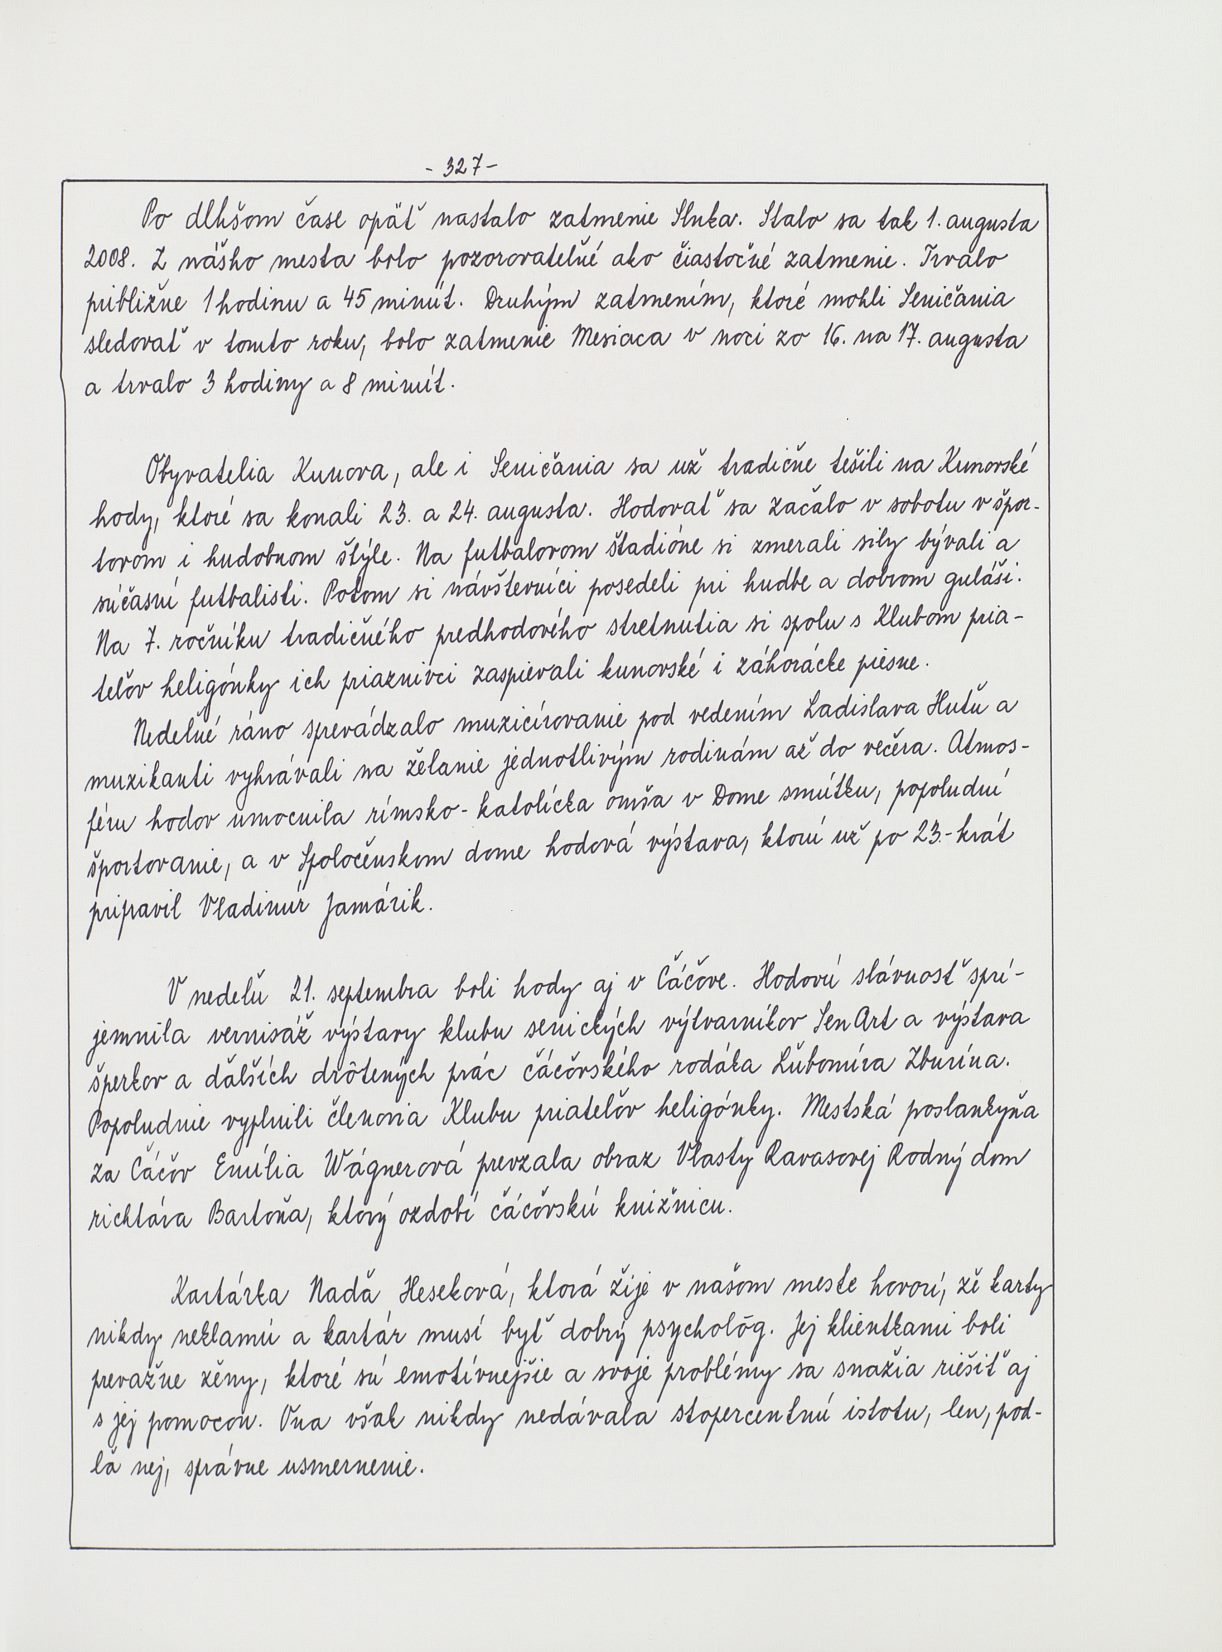 - 327 -
Po dlhšom čase opäť nastalo zatmenie Slnka. Stalo sa tak 1. augusta
2008. Z nášho mesta bolo pozorovateľné ako čiastočné zatmenie. Trvalo
približne 1 hodinu a 45 minút. Druhým zatmením, ktoré mohli Seničania
sledovať v tomto roku, bolo zatmenie Mesiaca v noci zo 16. na 17. augusta
a trvalo 3 hodiny a 8 minút.
Obyvatelia Kunova, ale i Seničania sa už tradične tešili na Kunovské
hody, ktoré sa konali 23. a 24. augusta. Hodovať sa začalo v sobotu v špor-
tovom i hudobnom štýle. Na futbalovom štadióne si zmerali sily bývalí a
súčasní futbalisti. Potom si návštevníci posedeli pri hudbe a dobrom guláši.
Na 7. ročníku tradičného predhodového stretnutia si spolu s Klubom pria-
teľov heligónky ich priaznivci zaspievali kunovské i záhorácke piesne.
Nedeľné ráno sprevádzalo muzicírovanie pod vedením Ladislava Huťu a
muzikanti vyhrávali na želanie jednotlivým rodinám až do večera. Atmos-
féru hodov umocnila rímsko-katolícka omša v Dome smútku, popoludní
športovanie, a v Spoločenskom dome hodová výstava, ktorú už po 23.-krát
pripravil Vladimír Jamárik.
V nedeľu 21. septembra boli hody aj v Čáčove. Hodovú slávnosť sprí-
jemnila vernisáž výstavy klubu senických výtvarníkov SenArt a výstava
šperkov a ďalších drôtených prác čáčovského rodáka Ľubomíra Zburína.
Popoludnie vyplnili členovia Klubu priateľov heligónky. Mestská poslankyňa
za Čáčov Emília Wágnerová prevzala obraz Vlasty Ravasovej Rodný dom
richtára Bartoňa, ktorý ozdobí čáčovskú knižnicu.
Kartárka Naďa Heseková, ktorá žije v našom meste hovorí, že karty
nikdy neklamú a kartár musí byť dobrý psychológ. Jej klientkami boli
prevažne ženy, ktoré sú emotívnejšie a svoje problémy sa snažia riešiť aj
s jej pomocou. Ona však nikdy nedávala stopercentnú istotu, len, pod-
ľa nej, správne usmernenie.